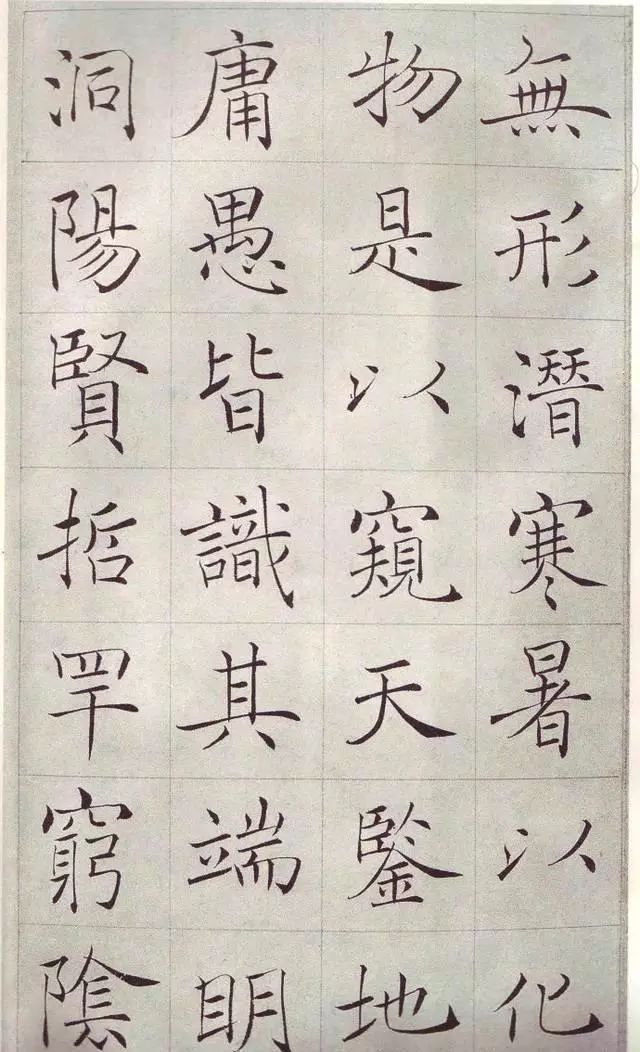 無形潛寒暑以化
物是以窺天鑒地
庸愚皆識其端眀
洞陽賢哲罕窮陰